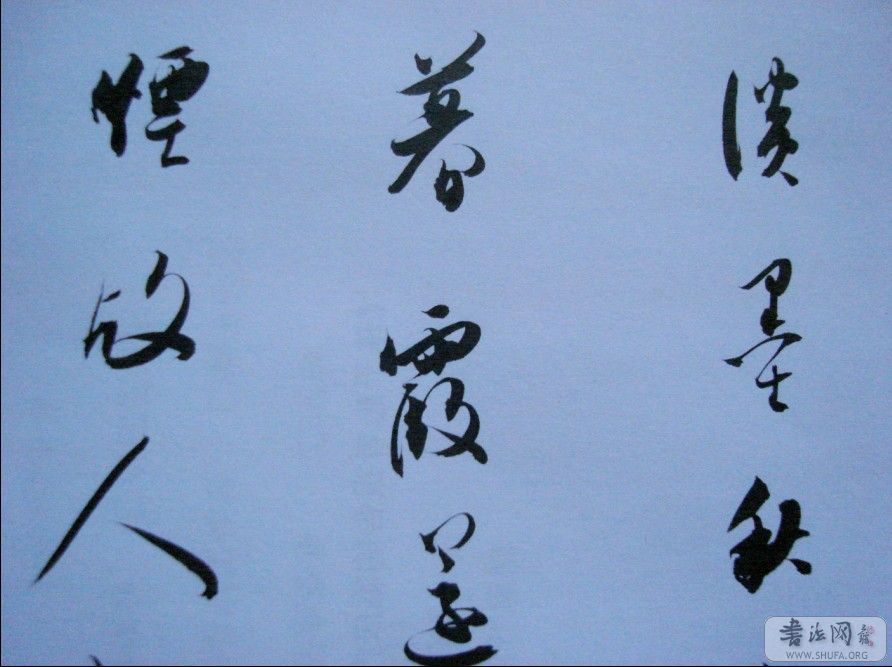 淡墨秋
暮霞還
煙故人
書法网
WWW.SHUFA.ORG